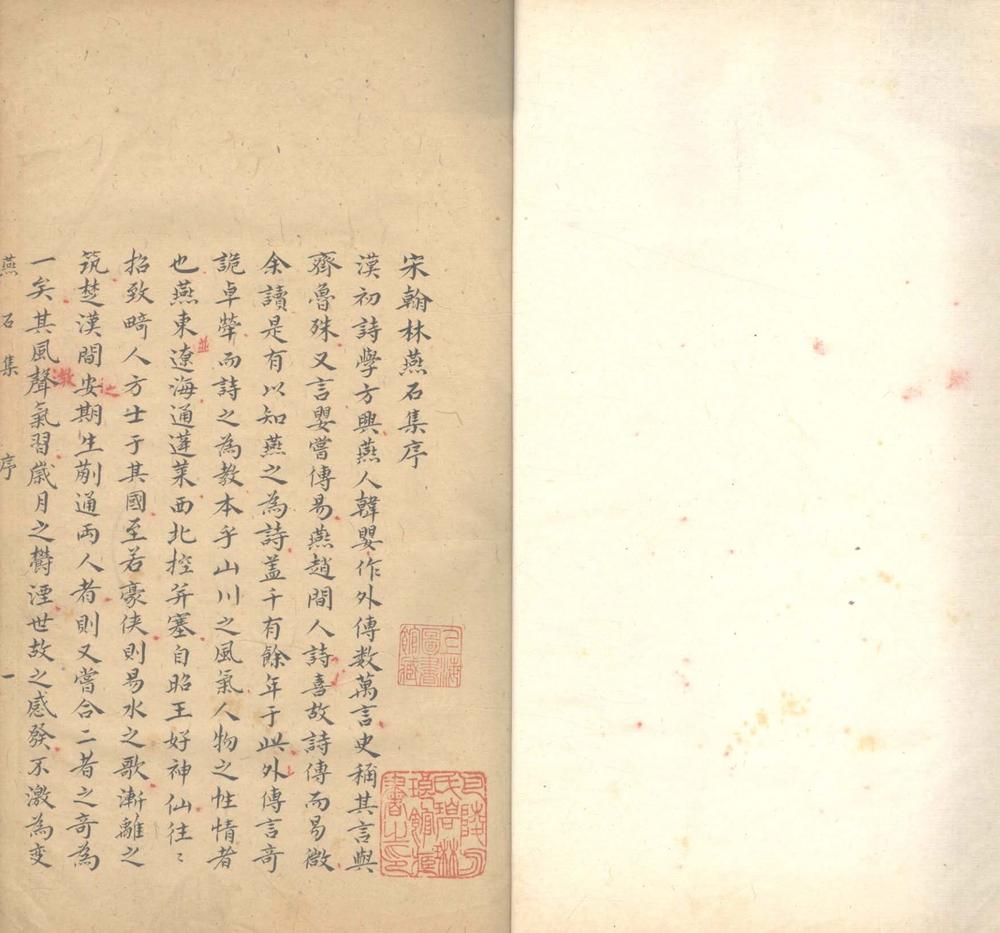 宋翰林燕石集序
漢初詩學方興燕人韓嬰作外傳数萬言史稱其言與
齊魯殊又言嬰嘗傳易燕趙間人詩喜故詩傳而易微
余讀是有以知燕之為詩蓋千有餘年于此外傳言奇
詭卓犖而詩之為教本乎山川之風氣人物之性情者
也燕東遼海通蓬萊西北控并塞自昭王好神仙往〻
並
招致畸人方士于其國至若豪侠則易水之歌漸離之
筑楚漢間安期生蒯通両人者則又嘗合二者之奇為
之
一矣其風聲氣習歲月之欝湮世故之感發不激為变
激
燕石集 序 一
上海圖書館藏